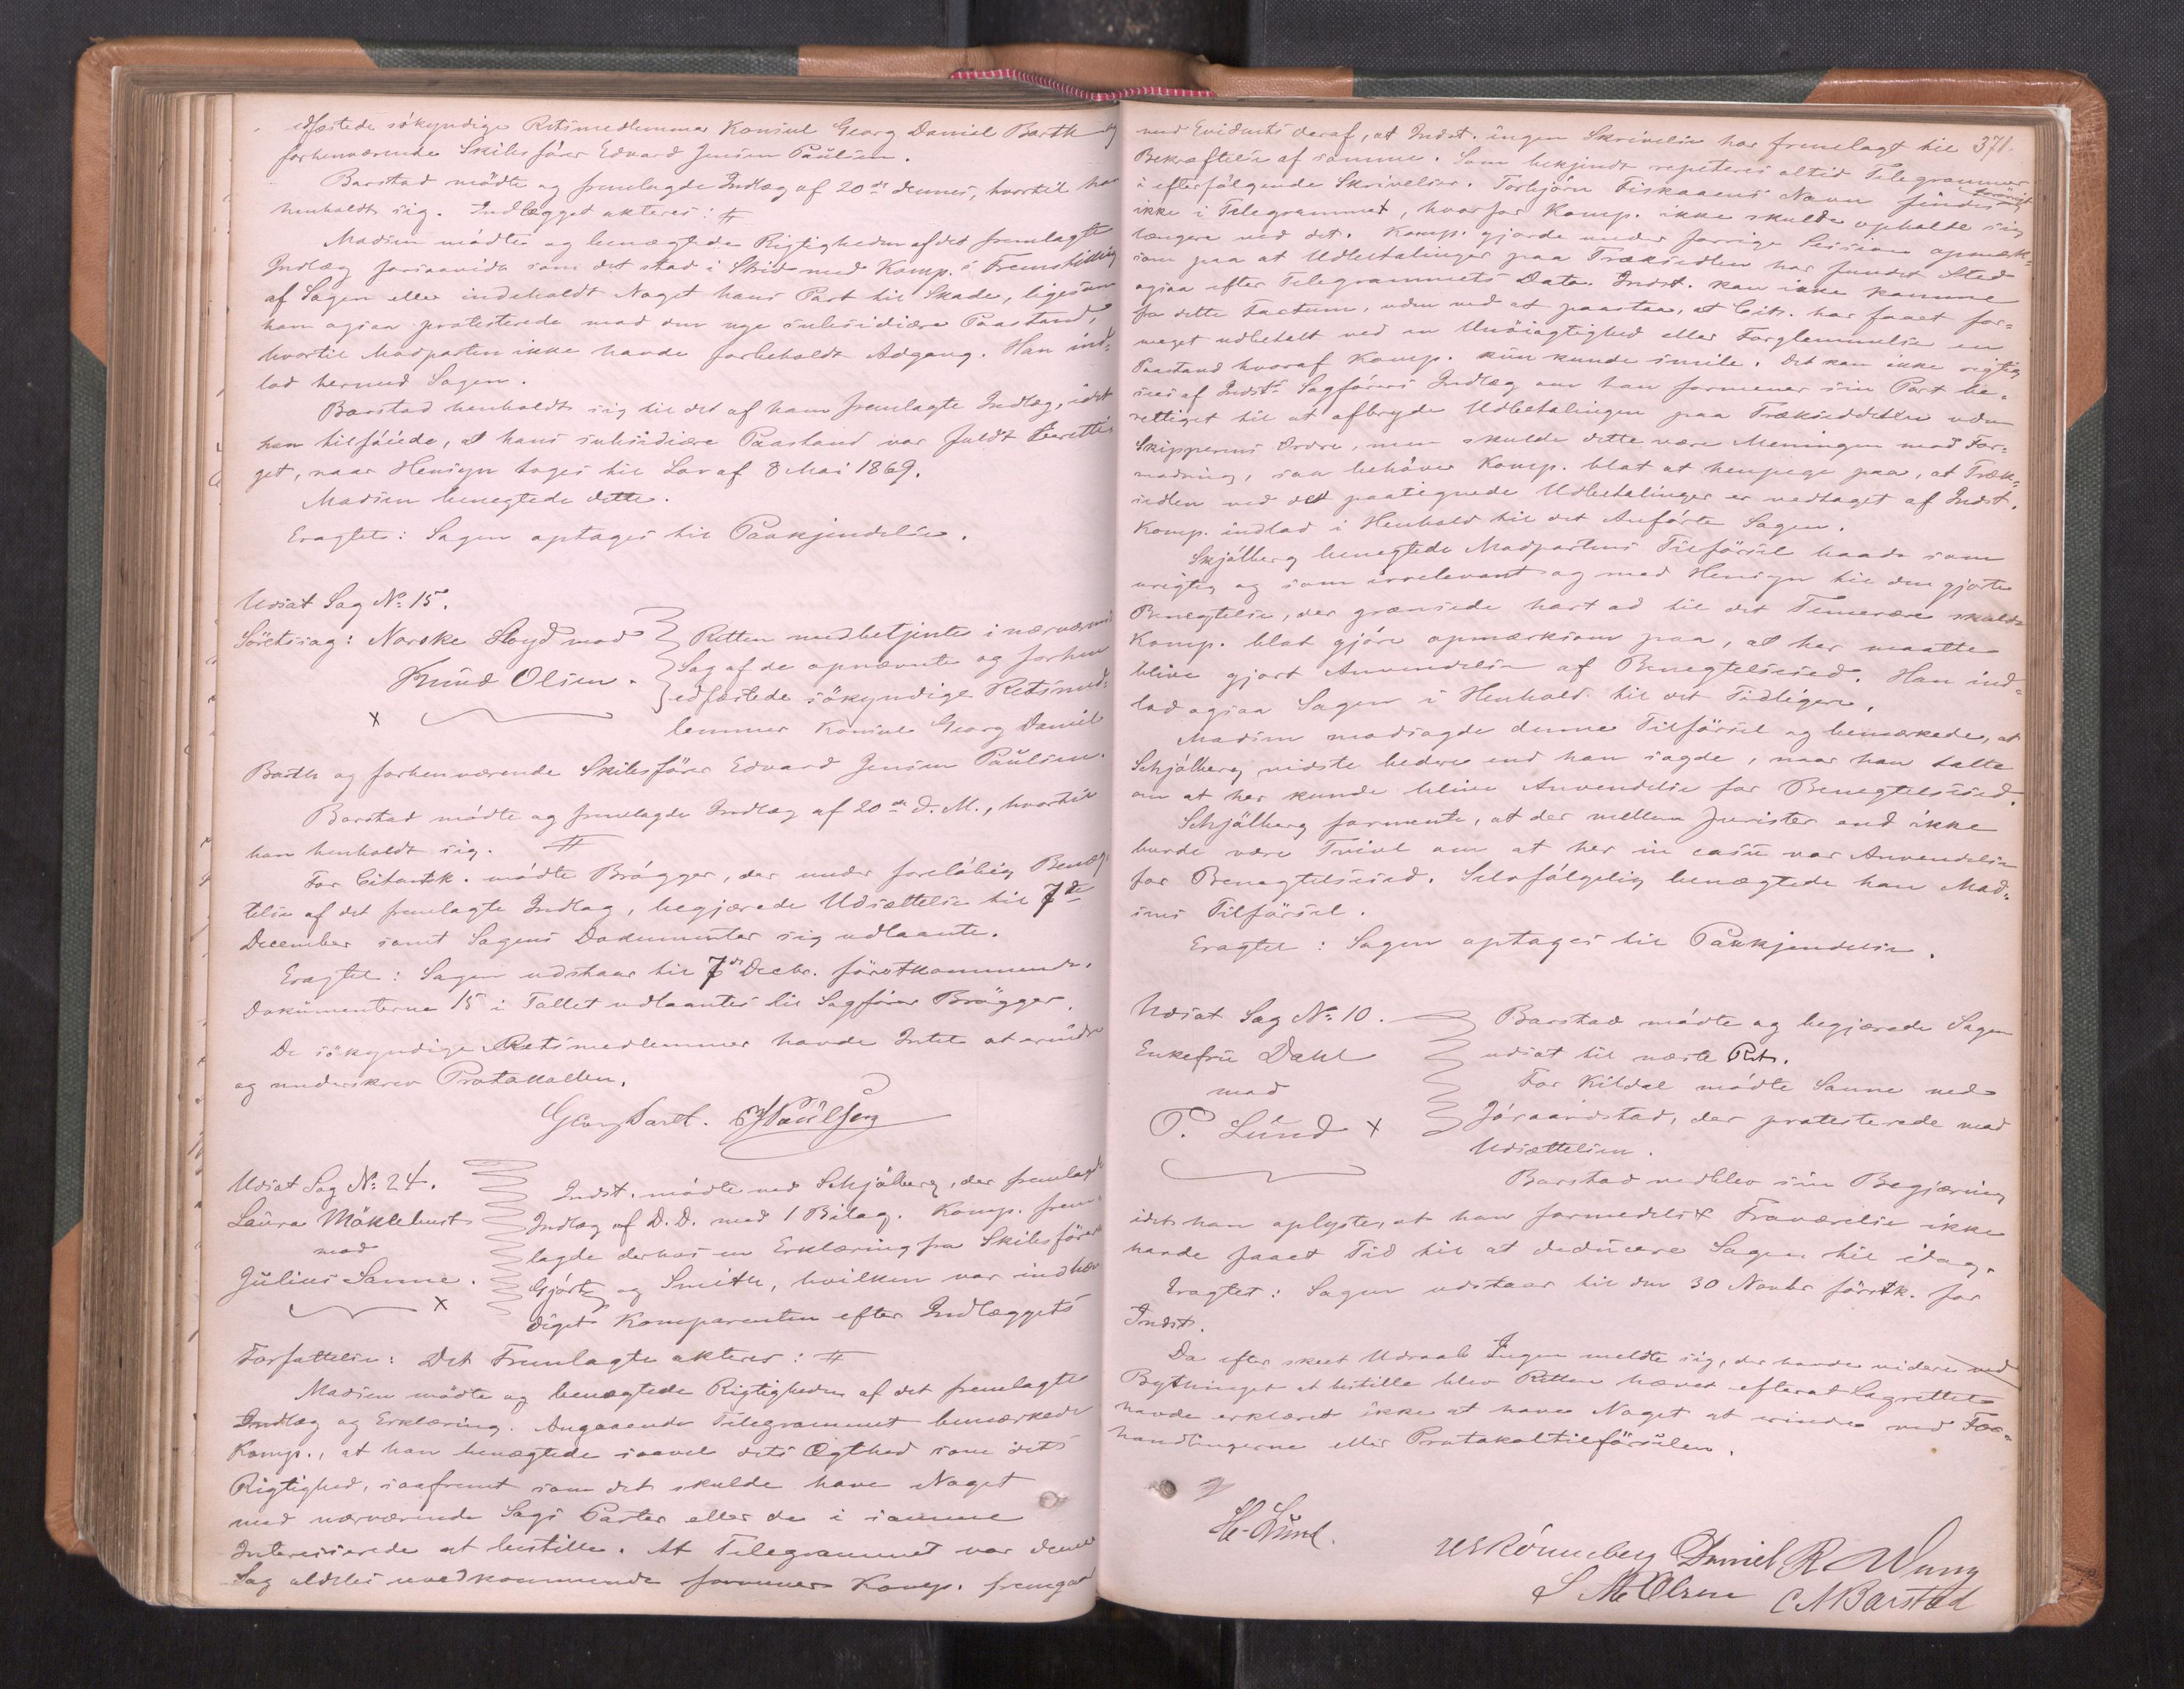 edfæstede sökyndige Retsmedlemmer Konsul Georg Daniel Barth og
forhenværende Skibsförer Edvard Jensen Paulsen.
Barstad mödte og fremlagde Indlæg af 20de dennes, hvortil han
henholdt sig. Indlægget akteres:
Madsen mödte og benægtede Rigtigheden af det fremlagte
Indlæg forsaavidt som det stod i Strid med Komp.s Fremstilling
af Sagen eller indeholdt Noget hans Part til Skade, ligesom
han ogsaa protesterede mod den nye subsidiære Paastand,
hvortil Modparten ikke havde forbeholdt Adgang. Han ind-
lod hermed Sagen.
Barstad henholdt sig til det af ham fremlagte Indlæg, idet
han tilföiede, at hans subsidiære Paastand var fuldt beretti-
get, naar Hensyn toges til Lov af 8 Mai 1869.
Madsen benegtede dette.
Eragtet: Sagen optages til Paakjendelse.
Udsat Sag No 15.
Söretssag: Norske Lloyd mod
Knud Olsen.
Retten medbetjentes i nærværende
Sag af de opnævnte og forhen
edfæstede sökyndige Retsmed-
lemmer Konsul Georg Daniel
Barth og forhenværende Skibsförer Edvard Jensen Paulsen.
Barstad mödte og fremlagde Indlæg af 20de d. M., hvortil
han henholdt sig.
For Citantsk. mödte Brögger, der under forelöbig Benæg-
telse af det fremlagte Indlæg, begjærede Udsættelse til 7de
December samt Sagens Dokumenter sig udlaante.
Eragtet: Sagen udstaar til 7de Decbr. förstkommende.
Dokumenterne 15 i Tallet udlaantes til Sagförer Brögger.
De sökyndige Retsmedlemmer havde Intet at erindre
og underskrev Protokollen.
Georg Barth. EJPaulsen
Udsat Sag No 24.
Laura Möklebust
mod
Julius Sanne.
Indst. mödte ved Schjölberg, der fremlagde
Indlæg af D. D. med 1 Bilag. Komp. frem-
lagde derhos en Erklæring fra Skibsförer
og Smith, hvilken var indhæn-
diget Komparenten efter Indlæggets
Forfattelse: Det Fremlagte akteres:
Madsen mödte og benægtede Rigtigheden af det fremlagte
Indlæg og Erklæring. Angaaende Telegrammet bemærkede
Komp., at han benægtede saavel dets Ægthed som dets
Rigtighed, saafremt som det skulde have Noget
med nærværende Sags Parter eller de i samme
Interesserede at bestille. At Telegrammet var denne
Sag aldeles uvedkommende formener Komp. fremgaar
371.
med Evidents deraf, at Indst. ingen Skrivelse har fremlagt til
Bekræftelse af samme. Som bekjendt repeteres altid Telegrammer
i efterfölgende Skrivelser. Torbjörn Fiskaaens Navn findes
ikke i Telegrammet, hvorfor Komp. ikke skulde opholde sig
længere ved det. Komp. gjorde under forrige Session opmærk-
som paa at Udbetalinger paa Træksedlen har fundet Sted
ogsaa efter Telegrammets Dato. Indst. kan ikke komme
fra dette Factum, uden ved at paastaa, at Cits. har faaet for-
meget udbetalt ved en Unöiagtighed eller Forglemmelse en
Paastand hvoraf Komp. kun kunde smile. Det kan ikke rigtig
sees af Indsts Sagförers Indlæg om han formener sin Part be-
rettiget til at afbryde Udbetalingen paa Trækseddelen uden
Skipperens Ordre, men skulde dette være Meningen mod For-
modning, saa behöver Komp. blot at henpege paa, at Træk-
sedlen ved det paategnede Udbetalinger er vedtaget af Indst.
Komp. indlod i Henhold til det Anförte Sagen.
Skjölberg benegtede Modpartens Tilförsel baade som
urigtig og som irrelevant og med Hensyn til den gjorte
Benegtelse, der grænsede hart ad til det Temerære skulde
Komp. blot gjöre opmærksom paa, at her maatte
blive gjort Anvendelse af Benegtelsesed. Han ind-
lod ogsaa Sagen i Henhold til det Tidligere.
Madsen modsagde denne Tilförsel og bemærkede, at
Schjölberg vidste bedre end han sagde, naar han talte
om at her kunde blive Anvendelse for Benegtelsesed.
Schjölberg formente, at der mellem Jurister end ikke
burde være Tvivl om at her in casu var Anvendelse
for Benegtelsesed. Selvfölgelig benægtede han Mad-
sens Tilförsel.
Eragtet: Sagen optages til Paakjendelse.
Udsat Sag No 10.
Enkefru Dahl
mod
P. Lund
Barstad mödte og begjærede Sagen
udsat til næste Ret.
For Kildal mödte Sanne ved
Jöraandstad, der protesterede mod
Udsættelsen.
Barstad vedblev sin Begjæring
idet han oplyste, at han formedelst Fraværelse ikke
havde faaet Tid til at deducere Sagen til idag.
Eragtet: Sagen udstaar til den 30 Novbr förstk. for
Indst.
Da efter skeet Udraab Ingen meldte sig, der havde videre ved
Bythinget at bestille blev Retten hævet efterat Lagrettet
havde erklæret ikke at have Noget at erindre ved For-
handlingerne eller Protokoltilförselen.
Lund.
Rönneberg Daniel R Wung
S M Olsen C M Barstad